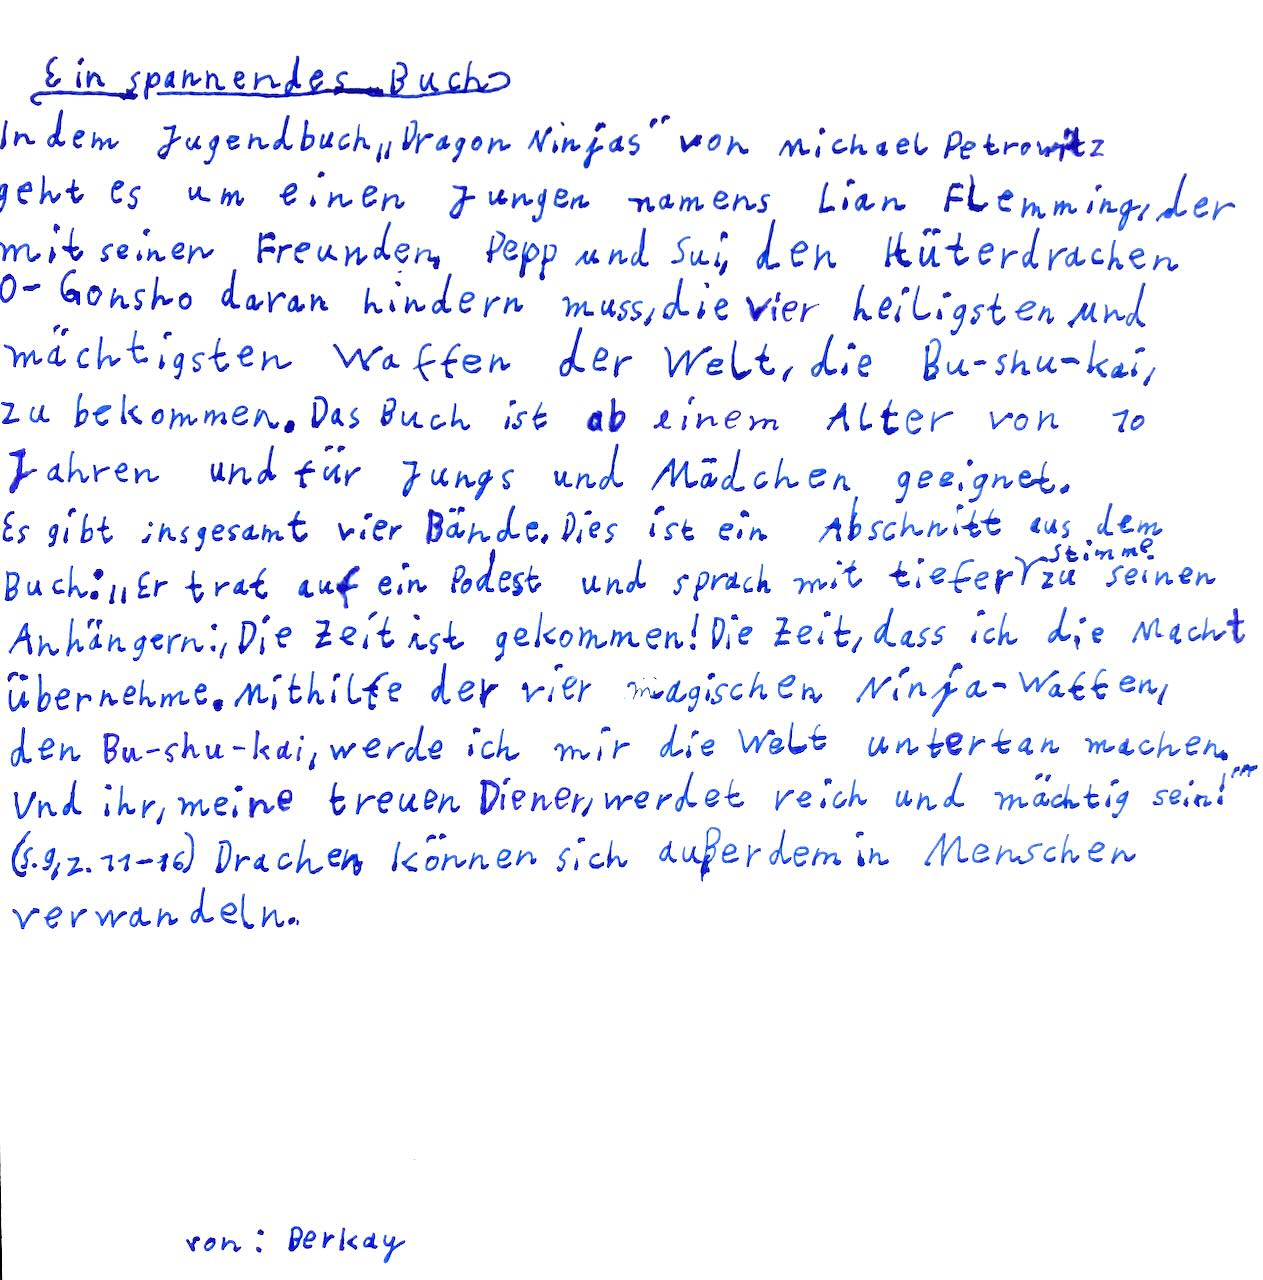 Ein spannendes Buch
In dem Jugendbuch „Dragon Ninjas" von Michael Petrowitz
geht es um einen Jungen namens Lian Flemming, der
mit seinen Freunden, Pepp und Sui, den Hüterdrachen
O-Gonsho daran hindern muss, die vier heiligsten und
mächtigsten Waffen der Welt, die Bu-shu-kai,
zu bekommen. Das Buch ist ab einem Alter von 10
Jahren und für Jungs und Mädchen geeignet.
Es gibt insgesamt vier Bände. Dies ist ein Abschnitt aus dem
Buch: „Er trat auf ein Podest und sprach mit tiefer Stimme zu seinen
Anhängern: ‚Die Zeit ist gekommen! Die Zeit, dass ich die Macht
übernehme. Mithilfe der vier magischen Ninja-Waffen,
den Bu-shu-kai, werde ich mir die Welt untertan machen.
Und ihr, meine treuen Diener, werdet reich und mächtig sein!'"
(S.9, Z. 11-16) Drachen können sich außerdem in Menschen
verwandeln.
von: Berkay